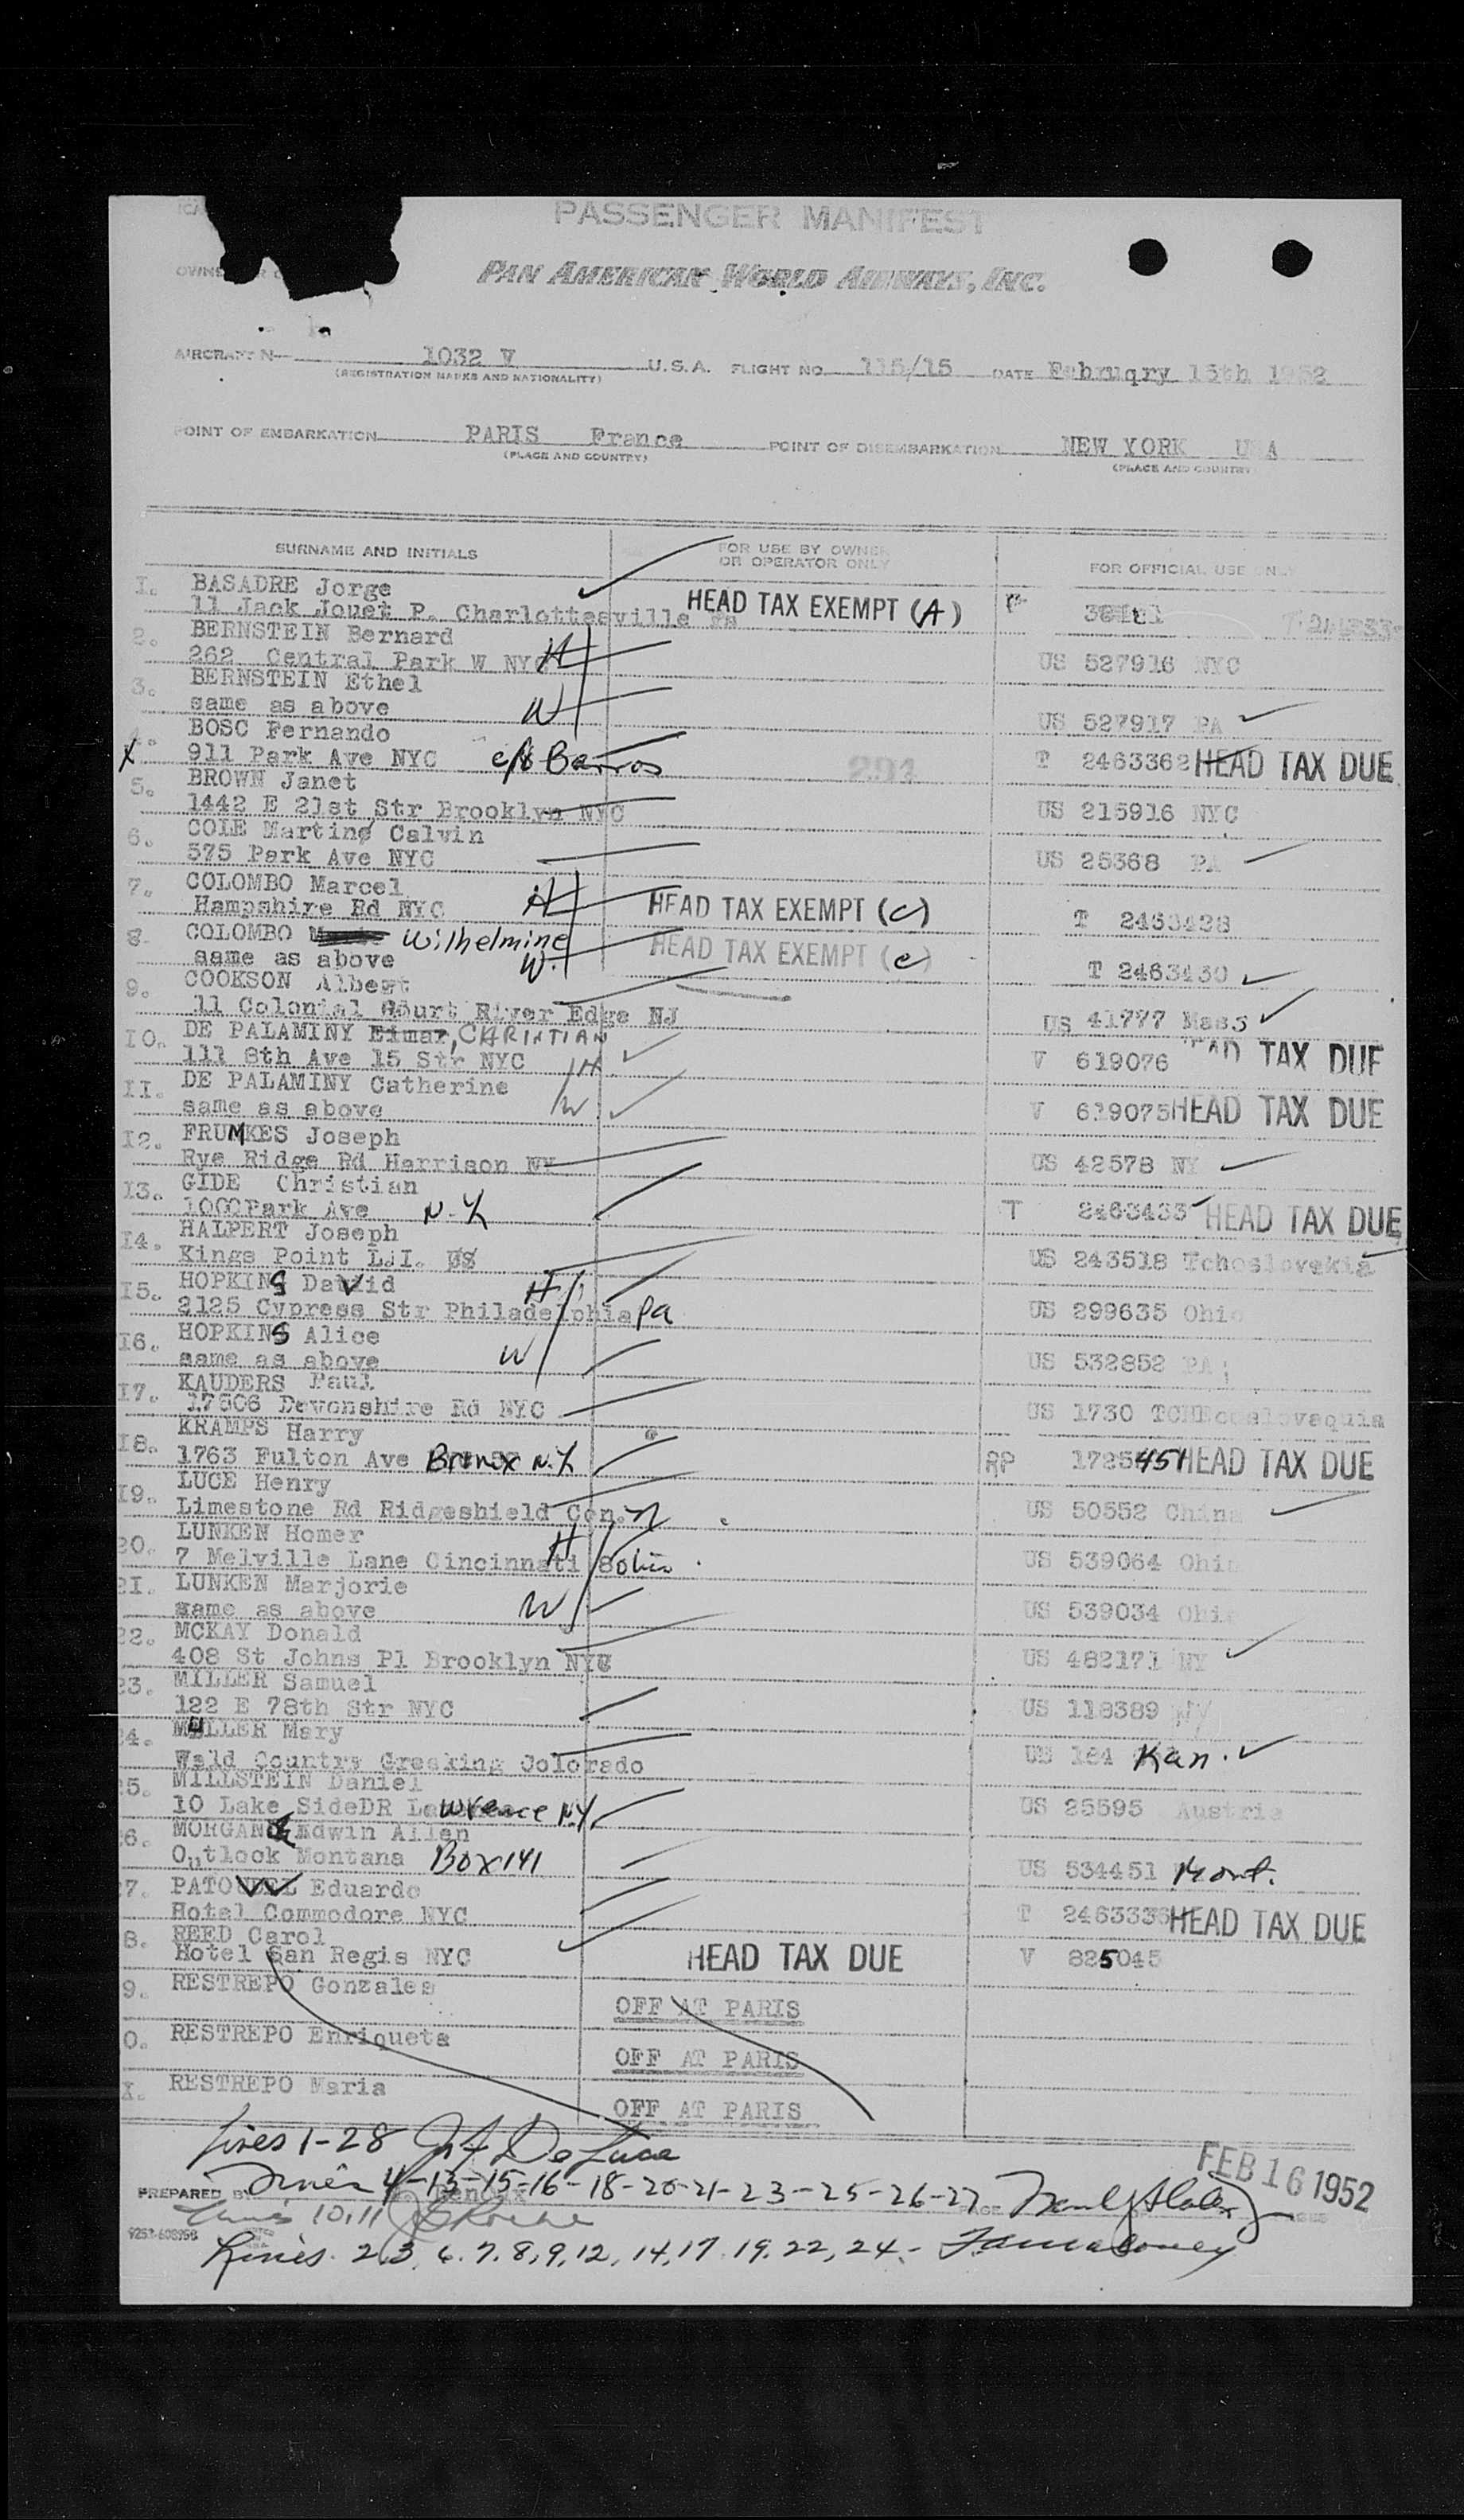 PASSENGER MANIFEST
PAN AMERICAN WORLD AIRWAYS, INC.
AIRCRAFT N 1032 V U.S.A. FLIGHT NO. 115/15 DATE Februqry 15th 1952
(REGISTRATION MARKS AND NATIONALITY)
POINT OF EMBARKATION PARIS France POINT OF DISEMBARKATION NEW YORK USA
(PLACE AND COUNTRY) (PLACE AND COUNTRY)
SURNAME AND INITIALS FOR USE BY OWNER OR OPERATOR ONLY FOR OFFICIAL USE ONLY
1. BASADRE Jorge
11 Jack Jouet P. Charlottesville HEAD TAX EXEMPT (A) P
2. BERNSTEIN Bernard
262 Central Park W NYC H US 527916 NYC
3. BERNSTEIN Ethel
same as above W US 527917 PA
4. BOSC Fernando
X 911 Park Ave NYC c/o Barros 291 T 2463362 HEAD TAX DUE
5. BROWN Janet
1442 E 21st Str Brooklyn NYC US 215916 NYC
6. COLE Martine Calvin
575 Park Ave NYC US 25368 PA
7. COLOMBO Marcel
Hampshire Rd NYC H HEAD TAX EXEMPT (c) T 2463428
8. COLOMBO Wilhelmine
same as above W. HEAD TAX EXEMPT (c) T 2463430
9. COOKSON Albert
11 Colonial Court River Edge NJ US 41777 Mass
10. DE PALAMINY Eimar, CHRISTIAN
111 8th Ave 15 Str NYC H V 619076 HEAD TAX DUE
11. DE PALAMINY Catherine
same as above W. V 619075 HEAD TAX DUE
12. FRUMKES Joseph
Rye Ridge Rd Harrison NY US 42578 NY
13. GIDE Christian
1000 Park Ave N.Y. T 2463433 HEAD TAX DUE
14. HALPERT Joseph
Kings Point L.I. US 243518 Tchoslovakia
15. HOPKINS David H
2125 Cypress Str Philadelphia Pa US 299635 Ohio
16. HOPKINS Alice
same as above W US 532852 PA
17. KAUDERS Paul
17506 Devonshire Rd NYC US 1730 TCHEcoslovaquia
18. KRAMPS Harry
1763 Fulton Ave Bronx N.Y. RP 1725451 HEAD TAX DUE
19. LUCE Henry
Limestone Rd Ridgeshield Con.n US 50552 China
20. LUNKEN Homer
7 Melville Lane Cincinnati 8 Ohio H US 539064 Ohio
21. LUNKEN Marjorie
same as above W US 539034 Ohio
22. MCKAY Donald
408 St Johns Pl Brooklyn NYC US 482171 NY
23. MILLER Samuel
122 E 78th Str NYC US 118389 NY
24. MULLER Mary
Weld Country Greaking Colorado US 184 Kan.
25. MILLSTEIN Daniel
10 Lake SideDR Lawrence N.Y. US 25595 Austria
26. MORGAN Edwin Allen
Outlook Montana Box 141 US 534451 Mont.
27. Eduardo
Hotel Commodore NYC T 2463336 HEAD TAX DUE
28. REED Carol
Hotel San Regis NYC HEAD TAX DUE V 825045
29. RESTREPO Gonzales
OFF AT PARIS
30. RESTREPO Enriqueta
OFF AT PARIS
31. RESTREPO Maria
OFF AT PARIS
Lines 1-28
FEB 16 1952
PREPARED BY Lines 4-13-15-16-18-20-21-23-25-26-27 PAGE
Lines 10,11
Lines 2,3, 6.7.8,9,12, 14,17 19,22,24.-